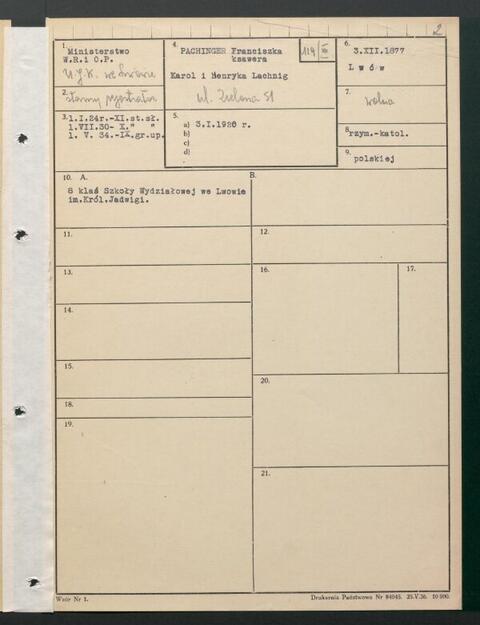 2
1.
Ministerstwo
W.R.i O.P.
U.J.K. we Lwowie
2.
starszy rejestrator
3.
1.I.24r.-XI.st.sł.
1.VII.30- X." "
1. V. 34.-IX.gr.up.
4.
PACHINGER Franciszka
ksawera
119
III
Karol i Henryka Lachnig
ul. Zielona 51
5.
a) 3.I.1920 r.
b)
c)
d)
6.
3.XII.1877
L w ó w
7.
wolna
8.
rzym.-katol.
9.
polskiej
10. A.
8 klas Szkoły Wydziałowej we Lwowie
im.Król.Jadwigi.
B.
11.
12.
13.
14.
15.
16.
17.
18.
19.
20.
21.
Wzór Nr 1.
Drukarnia Państwowa Nr 84045. 25.V.36. 10 000.